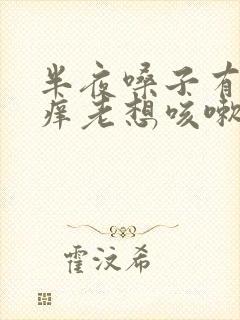 半夜嗓子有
痒老想咳嗽
霍汶希